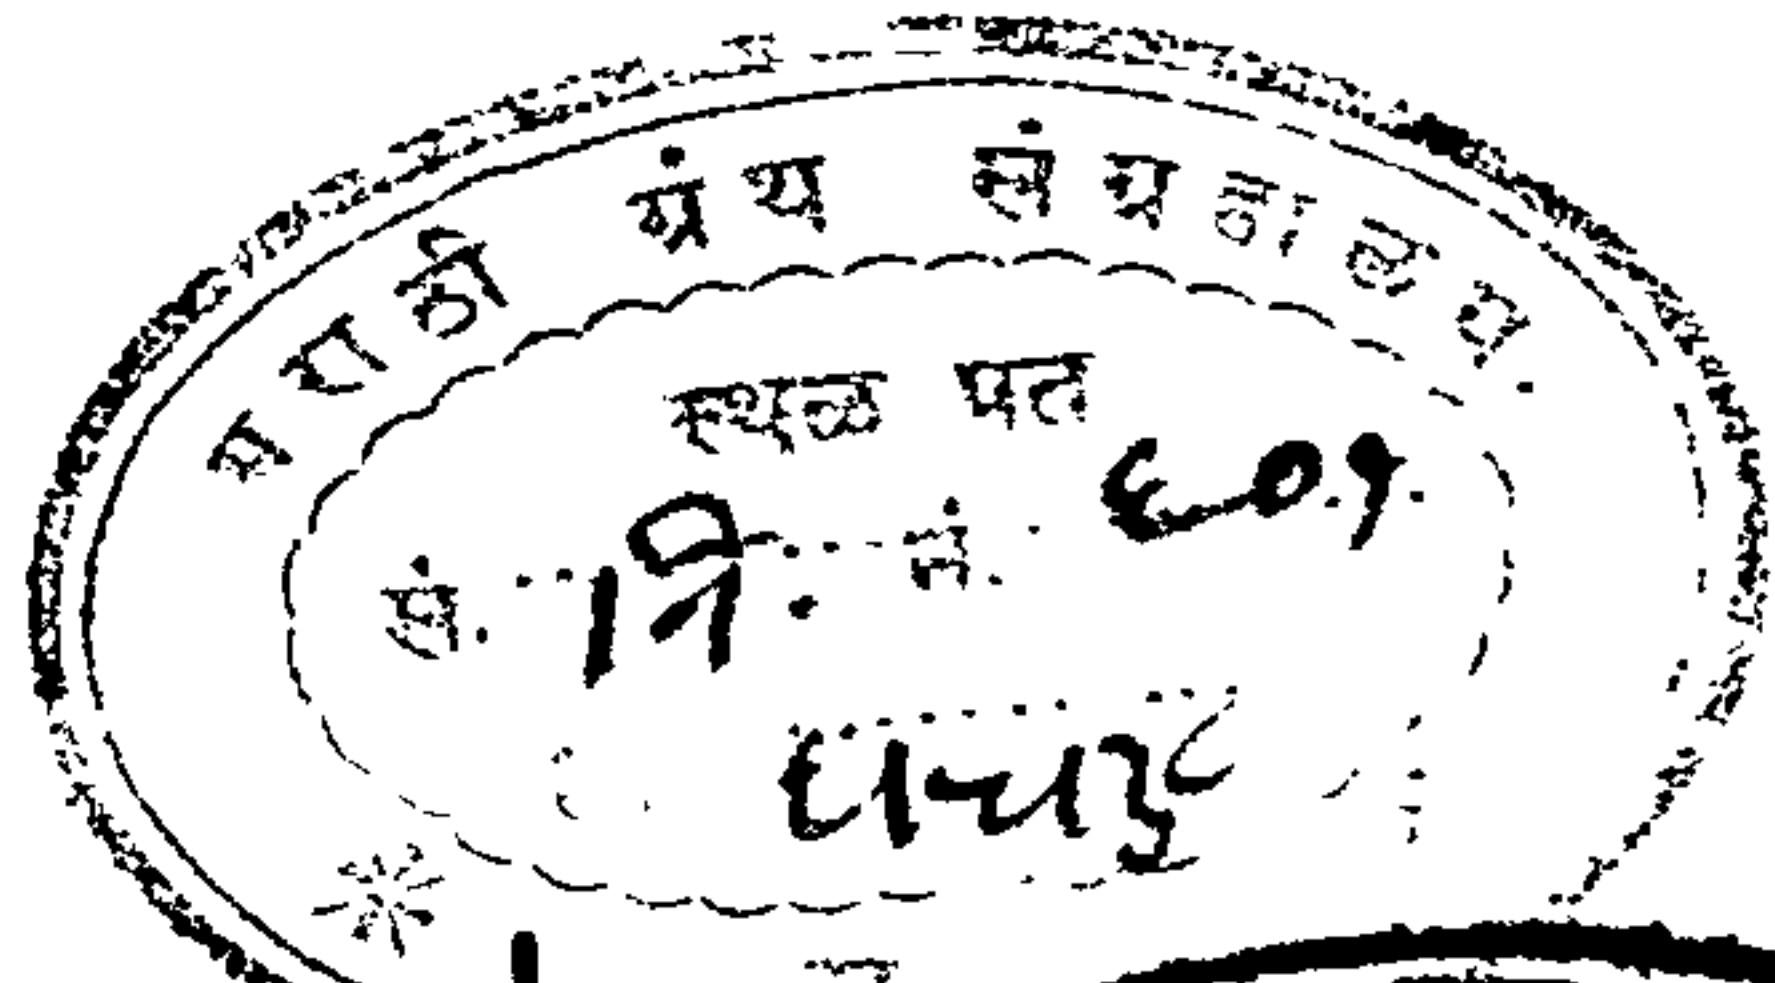 मराठी ग्रंथ संग्रहालय.
स्थळ प्रत
सं. नि. नं. ६०१.